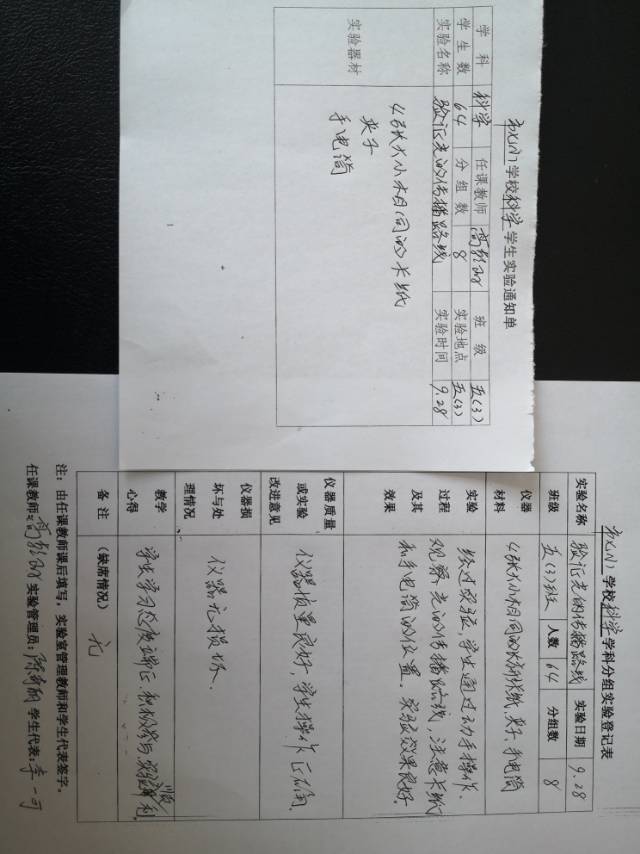 学校科学学生实验通知单
学科 科学 任课教师 班级 五(3)
学生数 64 分组数 8 实验地点 五(3)
实验名称 验证光的传播路线 实验时间 9.28
实验器材
4张大小相同的卡纸
夹子
手电筒
学校科学学科分组实验登记表
实验名称 验证光的传播路线 实验日期 9.28
班级 五(3)班 人数 64 分组数 8
仪器材料 4张大小相同的长方形卡纸、夹子、手电筒
实验过程及其效果
经过实验,学生通过动手操作,
观察光的传播路线,注意卡纸
和手电筒的位置。实验效果良好。
仪器质量或实验改进意见 仪器质量良好,学生操作正确。
仪器损坏与处理情况 仪器无损坏。
教学心得 学生学习态度端正,积极参与,实验顺利
备注 (缺席情况) 无
注:由任课教师课后填写,实验室管理教师和学生代表签字。
任课教师: 实验管理员: 学生代表:李一可